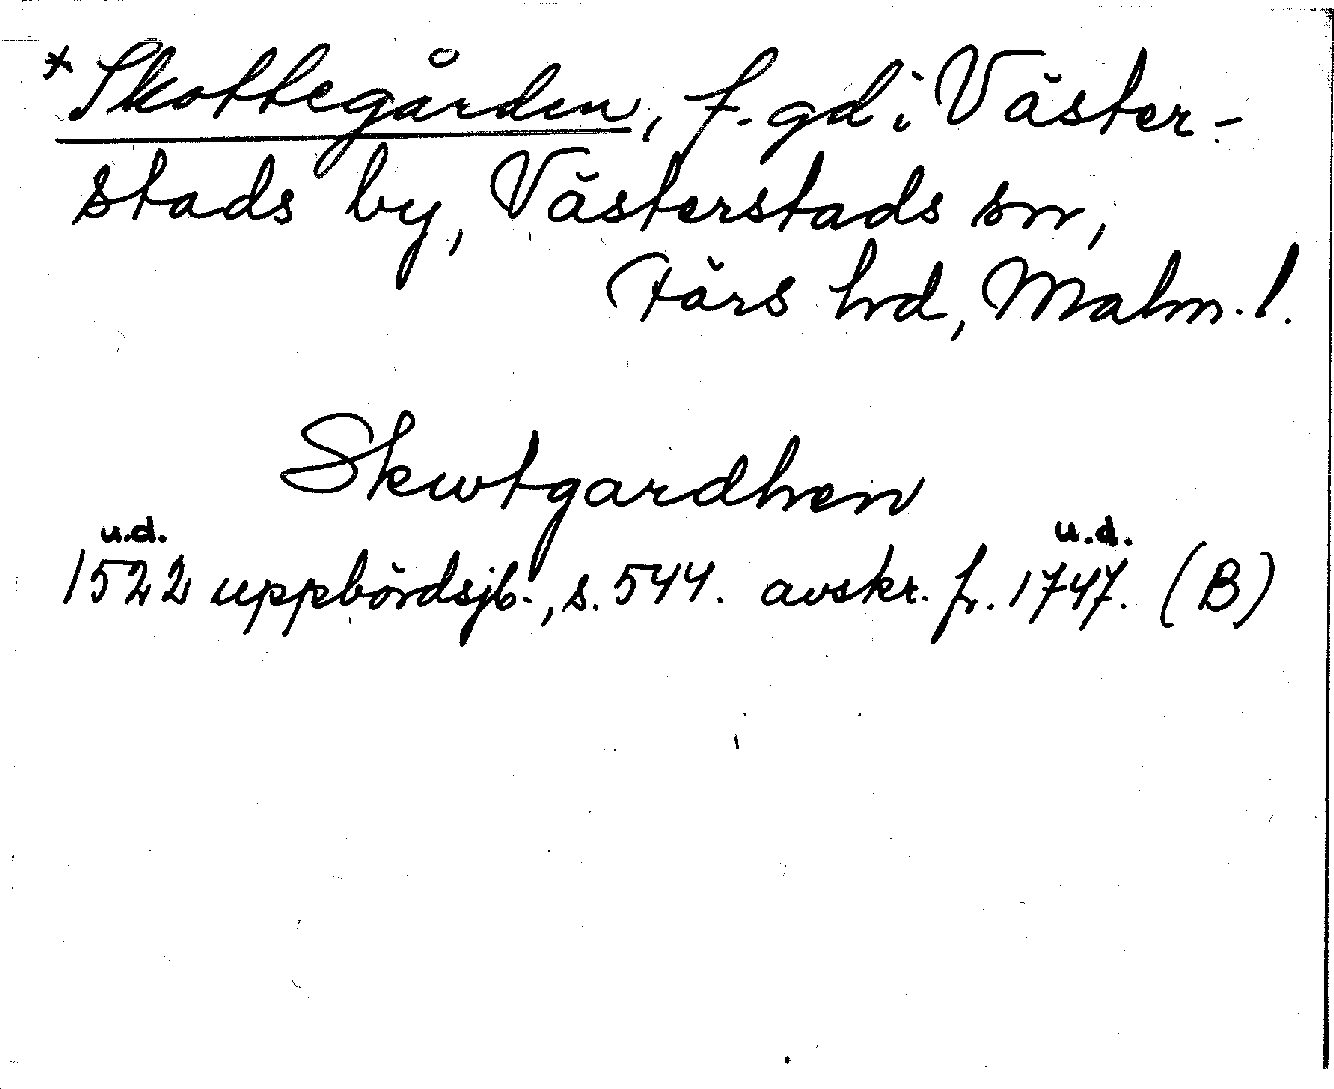 *Skottegården, f. gd i Väster-
stads by, Västerstads sn,
Färs hd, Malm. l.
Skwtgardhen
u.d. u.d.
1522 uppbördsjb., s. 544. avskr. fr. 1747. (B)